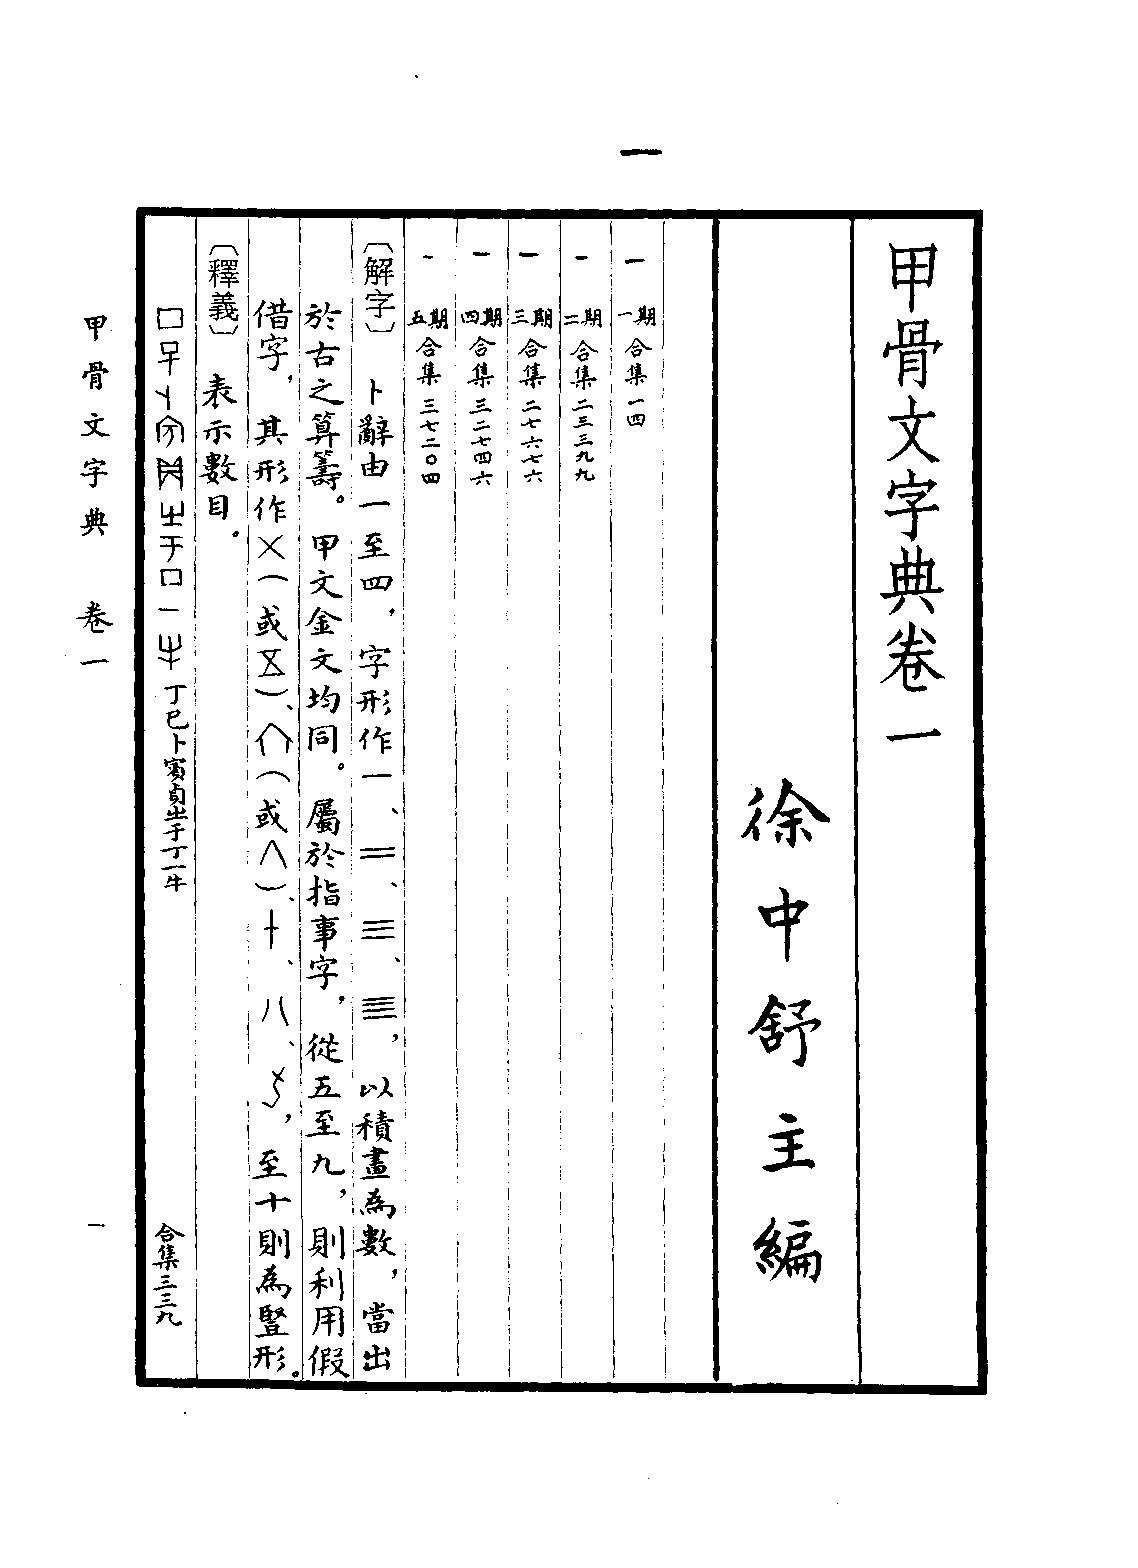 一
甲骨文字典卷一
徐中舒主編
一 一期 合集一四
一 二期 合集二三三九九
一 三期 合集二七六七六
一 四期 合集三二七四六
一 五期 合集三七二〇四
〔解字〕 卜辭由一至四，字形作一、二、三、亖，以積畫為數，當出
於古之算籌。甲文金文均同。屬於指事字，從五至九，則利用假
借字，其形作㐅（或𠄡）、（或∧）、十、八、，至十則為豎形。
〔釋義〕 表示數目。
丁巳卜賓貞㞢于丁一牛 合集三三九
甲骨文字典 卷一 一